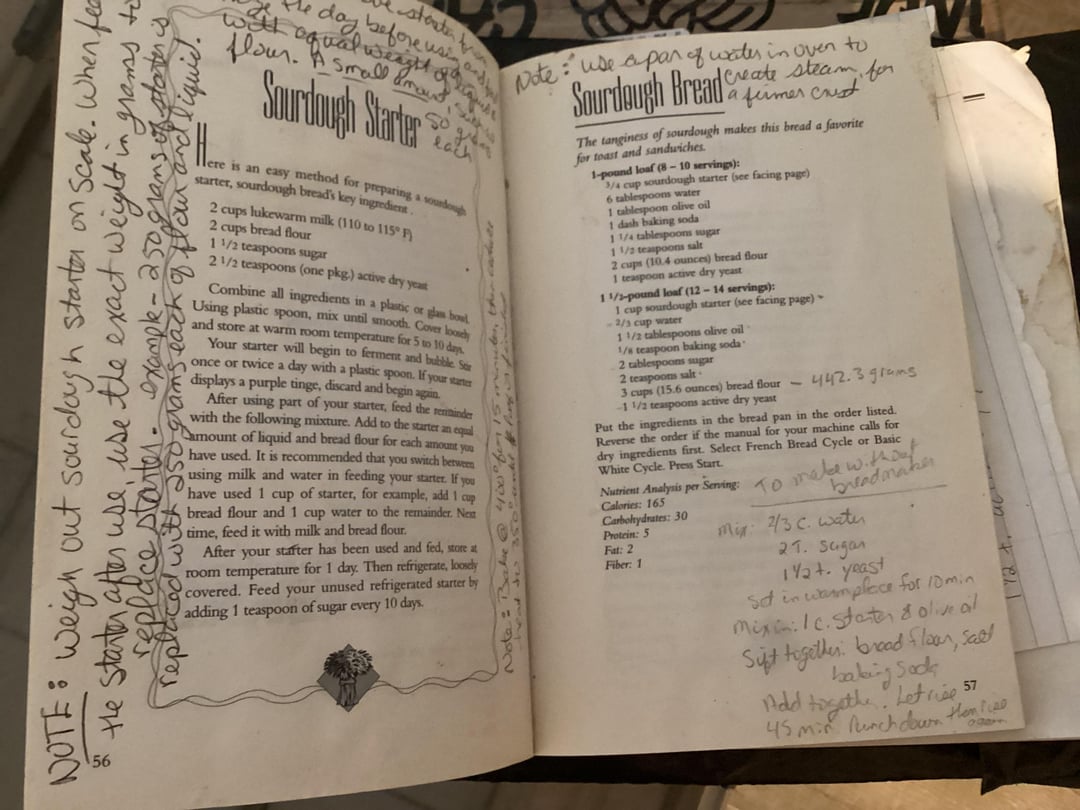 the day before using and feed
with equal weight of liquid &
flour. A small amount such as
50 grams
each
Sourdough Starter
Here is an easy method for preparing a sourdough
starter, sourdough bread's key ingredient.
2 cups lukewarm milk (110 to 115° F)
2 cups bread flour
1 1/2 teaspoons sugar
2 1/2 teaspoons (one pkg.) active dry yeast
Combine all ingredients in a plastic or glass bowl.
Using plastic spoon, mix until smooth. Cover loosely
and store at warm room temperature for 5 to 10 days.
Your starter will begin to ferment and bubble. Stir
once or twice a day with a plastic spoon. If your starter
displays a purple tinge, discard and begin again.
After using part of your starter, feed the remainder
with the following mixture. Add to the starter an equal
amount of liquid and bread flour for each amount you
have used. It is recommended that you switch between
using milk and water in feeding your starter. If you
have used 1 cup of starter, for example, add 1 cup
bread flour and 1 cup water to the remainder. Next
time, feed it with milk and bread flour.
After your starter has been used and fed, store at
room temperature for 1 day. Then refrigerate, loosely
covered. Feed your unused refrigerated starter by
adding 1 teaspoon of sugar every 10 days.
56
NOTE: weigh out sourdough starter on scale. When fee
the starter after use, use the exact weight in grams to
replace starter. example - 250 grams of starter is
replaced with 250 grams each of flour and liquid.
Note: Bake @ 400° for 15 minutes, then reduce
heat to 350°
Note: use a pan of water in oven to
create steam, for
a firmer crust
Sourdough Bread
The tanginess of sourdough makes this bread a favorite
for toast and sandwiches.
1-pound loaf (8 – 10 servings):
3/4 cup sourdough starter (see facing page)
6 tablespoons water
1 tablespoon olive oil
1 dash baking soda
1 1/4 tablespoons sugar
1 1/2 teaspoons salt
2 cups (10.4 ounces) bread flour
1 teaspoon active dry yeast
1 1/2-pound loaf (12 – 14 servings):
1 cup sourdough starter (see facing page)
2/3 cup water
1 1/2 tablespoons olive oil
1/8 teaspoon baking soda
2 tablespoons sugar
2 teaspoons salt
3 cups (15.6 ounces) bread flour – 442.3 grams
1 1/2 teaspoons active dry yeast
Put the ingredients in the bread pan in the order listed.
Reverse the order if the manual for your machine calls for
dry ingredients first. Select French Bread Cycle or Basic
White Cycle. Press Start.
Nutrient Analysis per Serving:
Calories: 165
Carbohydrates: 30
Protein: 5
Fat: 2
Fiber: 1
To make without
breadmaker
Mix: 2/3 c. water
2 T. sugar
1 1/2 t. yeast
Set in warm place for 10 min
Mix in: 1 c. starter & olive oil
Sift together: bread flour, salt
baking soda
Add together. Let rise
45 min. Punch down then rise
again
57